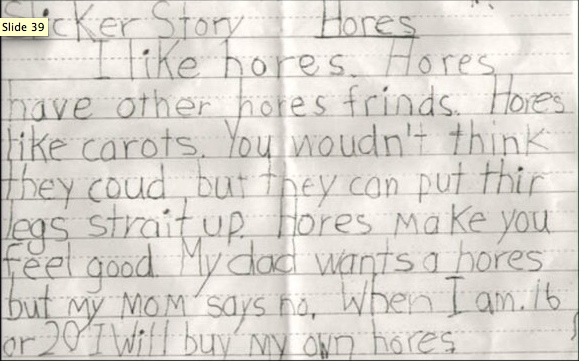 Slide 39
Sticker Story Hores
I like hores. Hores
have other hores frinds. Hores
like carots. You woudn't think
they coud but they can put thir
legs strait up. hores make you
feel good. My dad wants a hores
but my Mom says no. When I am. 16
or 20 I Will buy my own hores